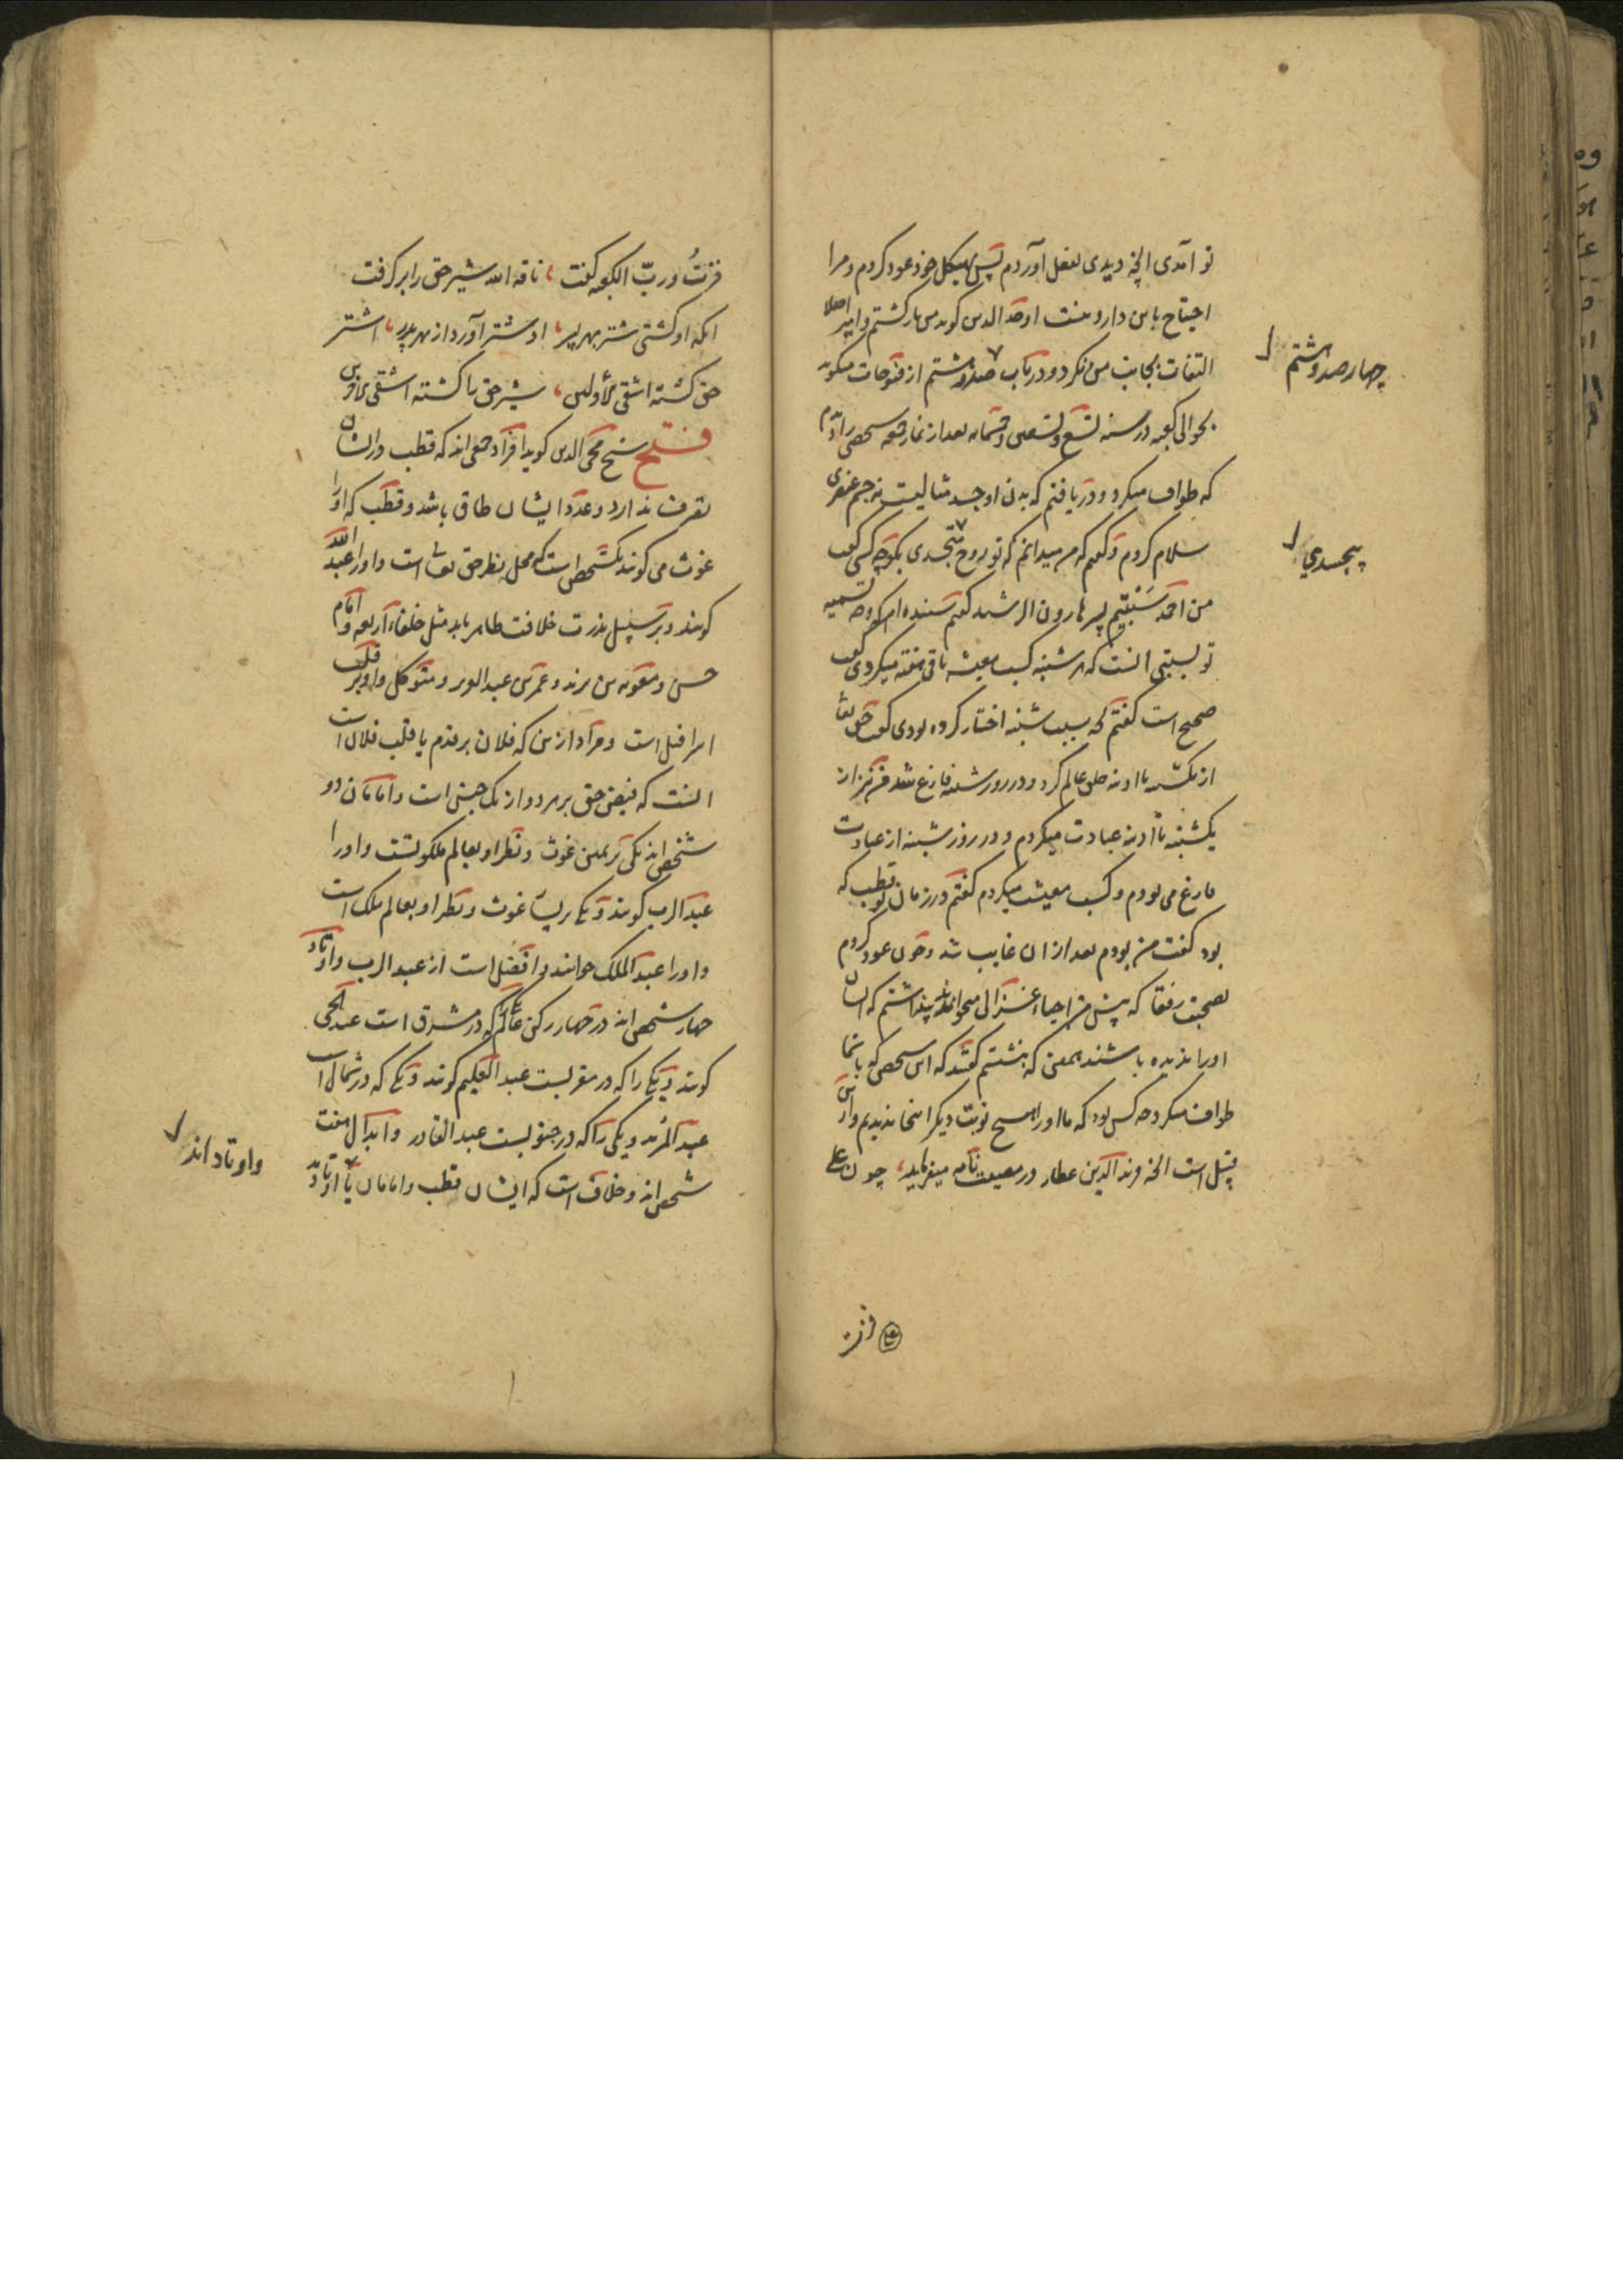 تو آمدی انچه دیدی بفعل آوردم پس بهیکل خود عود کردم و مرا
احتیاج باین دارو نیست اوحد الدین کوید من بازکشتم و امیر اصلا
التفات بجانب من نکرد و در باب صد و هشتم از فتوحات میکوید
چهارصد و هشتم
بحوالی کعبه در سنه تسع و تسعین و خمسمایه بعد از نماز جمعه شخصی را دیدم
که طواف میکرد و دریافتم که بدن او جسد مثالیست نه جسم عنصری
سلام کردم و کفتم که من میدانم که تو روح متجسدی بکوچه کسی کفت
پیجسدی
من احمد سبتیم پسر هارون الرشید کفتم شنیده ام که وجه تسمیه
تو بسبتی انست که هر شنبه کسب معیشه باقی هفته میکردی کفت
صحیح است کفتم بچه سبب شنبه اختیار کرده بودی کفت حق تعالی
از یکشنبه تا ادینه خلق عالم کرد و در روز شنبه فارغ شد من نیز از
یکشنبه تا ادینه عبادت میکردم و در روز شنبه از عبادت
فارغ می بودم و کسب معیشت میکردم کفتم در زمان تو قطب که
بود کفت من بودم بعد از ان غایب شد و چون عود کردم
بصحبت رفقا که پیش من احیاء غزالی میخواندند پنداشتم که ایشان
اورا ندیده باشند همین که بنشستم کفتند که این شخص که با شما
طواف میکرد چه کس بود که ما اورا هیچ نوبت دیکر اینجا ندیدیم و ازین
قبیل است انچه فرید الدین عطار در مصیبت نامه میفرماید چون علی
فزت
فزتُ و ربّ الکعبه کفت ناقه الله شیر حق را بر کرفت
انکه او کشتی شتر بهر پسر او شتر آورد از بهر پدر اشتر
حق کشته اشقی الأولین شیر حق را کشته اشقی الاخرین
فتح شیخ محی الدین کوید افراد جمعی اند که قطب در ایشان
تصرف ندارد و عدد ایشان طاق باشد و قطب که اورا
غوث می کویند یکشخص است که محل نظر حق تعالی است و اورا عبد الله
کویند و بر سبیل ندرت خلافت ظاهر یابد مثل خلفاء اربعه و امام
حسن و معویه بن یزید و عمر بن عبد العزیز و متوکل و او بر قلب
اسرافیل است و مراد ازین که فلان بر قدم یا قلب فلان است
انست که فیض حق بر هر دو از یک جنس است و امامان دو
شخص اند یکی بر یمین غوث و نظر او بعالم ملکوتست و اورا
عبد الرب کویند و یکی بر یسار غوث و نظر او بعالم ملک است
و اورا عبد الملک خوانند و افضل است از عبد الرب و اوتاد
چهار شخص اند در چهار رکن عالم که در مشرق است عبد الحی
کویند و یکی را که در مغربست عبد العلیم کویند و یکی که در شمال است
عبد المرید و یکی را که در جنوبست عبد القادر و ابدال هفت
شخص اند و خلاف است که ایشان قطب و امامان یا اوتاد
و اوتاد اند